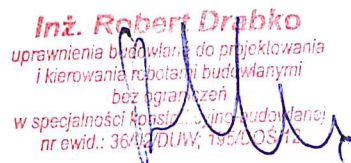 Inż. Robert Drabko
uprawnienia budowlane do projektowania
i kierowania robotami budowlanymi
bez ograniczeń
w specjalności konstrukcyjno-budowlanej
nr ewid.: 36/02/DUW, 195/DOŚ/12